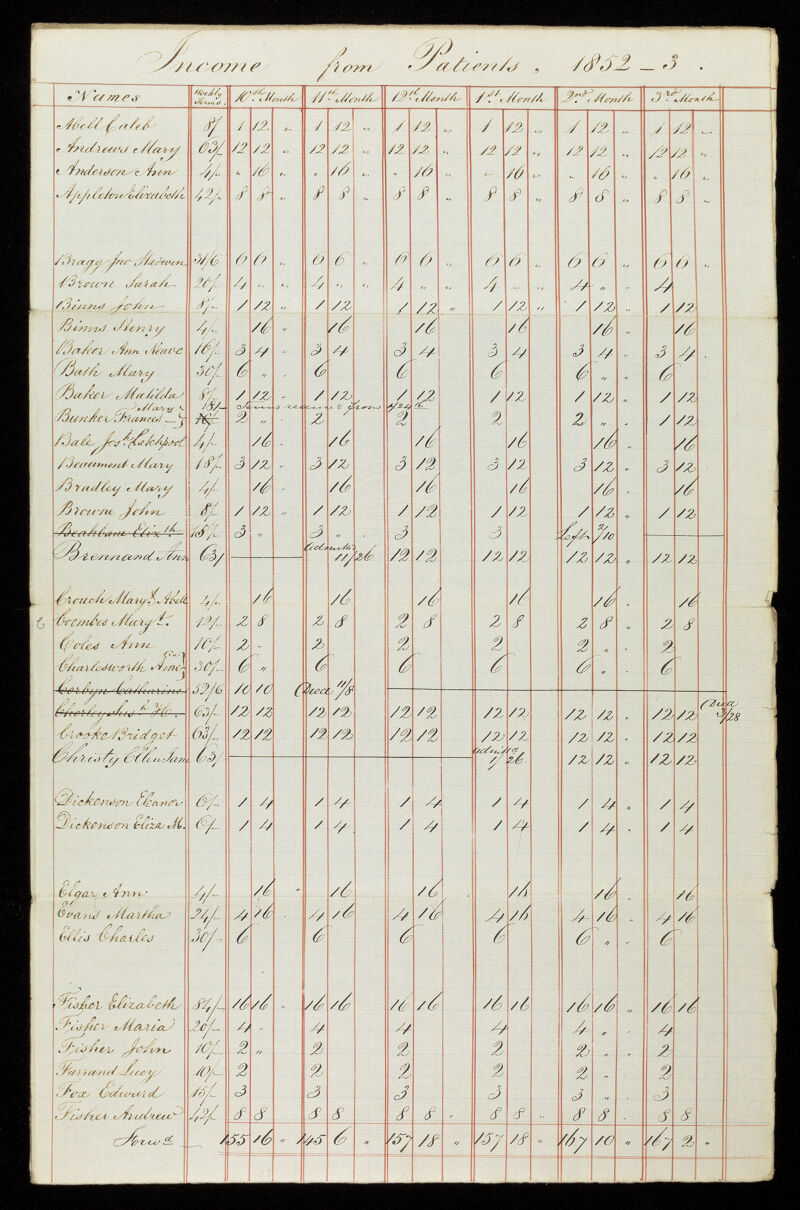 Income from Patients, 1852 – 3.
Names Weekly Terms. 10th Month 11th Month 12th Month 1st Month 2nd Month 3rd Month
Abell Caleb 8/ 1 12 „ 1 12 „ 1 12 „ 1 12 „ 1 12 „ 1 12 „
Andrews Mary 63/- 12 12 „ 12 12 „ 12 12 „ 12 12 „ 12 12 „ 12 12 „
Anderson Ann 4/- „ 16 „ „ 16 „ „ 16 „ „ 16 „ „ 16 „ „ 16 „
Appleton Elizabeth 42/- 8 8 „ 8 8 „ 8 8 „ 8 8 „ 8 8 „ 8 8 „
Bragg Jno 31/6 6 6 „ 6 6 „ 6 6 „ 6 6 „ 6 6 „ 6 6 „
Brown Sarah 20/- 4 „ „ 4 „ „ 4 „ „ 4 „ „ 4 „ „ 4
Binns John 8/- 1 12 „ 1 12 1 12 „ 1 12 „ 1 12 „ 1 12
Binns Henry 4/- 16 „ 16 16 16 16 „ 16
Baker Ann Neave 16/- 3 4 „ 3 4 3 4 3 4 3 4 „ 3 4 .
Bath Mary 30/- 6 „ . 6 6 6 6 „ „ 6
Baker Matilda 8/- 1 12 „ 1 12 1 12 1 12 1 12 „ 1 12
Mary 8/- from 1/24th
Bunker Frances 10/- 2 „ . 2 2 2 2 „ . 1 12
Bale Josh. Catchpool 4/- 16 . 16 16 16 16 . 16
Beaumont Mary 18/- 3 12 „ 3 12 3 12 3 12 3 12 „ 3 12
Bradley Mary 4/- 16 - 16 16 16 16 . 16
Browne John 8/- 1 12 „ 1 12 1 12 1 12 1 12 „ 1 12
Elizth. 15/- 3 „ 3 „ . 3 3 Left 2/10
Brennand Ann 63/ Admitted 11/26 12 12 12 12 12 12 „ 12 12
Crouch Margt. Abell 4/- 16 16 16 16 16 . 16
Coombes Margt. 12/- 2 8 2 8 2 8 2 8 2 8 „ 2 8
Coles Ann 10/- 2 „ 2 2 2 2 „ . 2
Charlesworth Ame 30/- 6 „ 6 6 6 6 „ . 6
Corbyn Catharine 52/6 10 10 (Died 11/8
Chorley H. 63/- 12 12 12 12 12 12 12 12 12 12 . 12 12 (Died 3/28
Crooke Bridget 63/- 12 12 12 12 12 12 12 12 12 12 . 12 12
Christy Ellen Jane 63/ Admitted 1/26 12 12 „ 12 12
Dickenson Eleanor 6/- 1 4 1 4 1 4 1 4 1 4 „ 1 4
Dickenson Eliza M. 6/- 1 4 1 4 1 4 1 4 1 4 . 1 4
Elgar Ann 4/- 16 „ 16 16 16 16 . 16
Evans Martha 24/- 4 16 . 4 16 4 16 4 16 4 16 . 4 16
Ellis Charles 30/- 6 6 6 6 6 „ . 6
Fisher Elizabeth 84/- 16 16 „ 16 16 16 16 16 16 16 16 „ 16 16
Fisher Maria 20/- 4 - 4 4 4 4 „ . 4
Fisher John 10/- 2 „ 2 2 2 2 „ . 2
Farrand Lucy 10/- 2 2 2 2 2 „ . 2
Fox Edward 15/- 3 3 3 3 3 „ . 3
Fisher Andrew 42/- 8 8 8 8 8 8 . 8 8 . 8 8 . 8 8
Forwd 155 16 „ 145 6 „ 157 18 „ 157 18 „ 167 10 „ 167 2 „